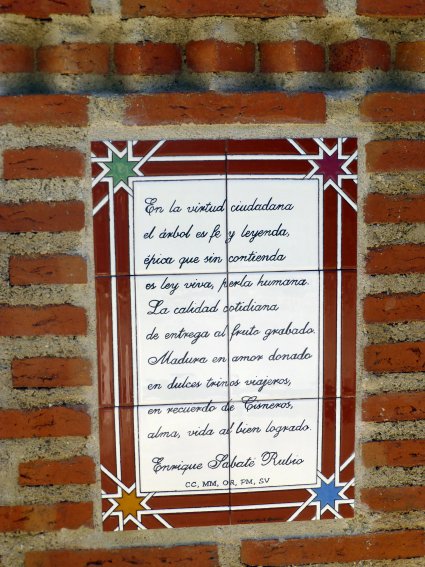 En la virtud ciudadana
el árbol es fe y leyenda,
épica que sin contienda
es ley viva, perla humana.
La calidad cotidiana
de entrega al fruto grabado.
Madura en amor donado
en dulces trinos viajeros,
en recuerdo de Cisneros,
alma, vida al bien logrado.
Enrique Sabate Rubio
CC, MM, OR, PM, SV